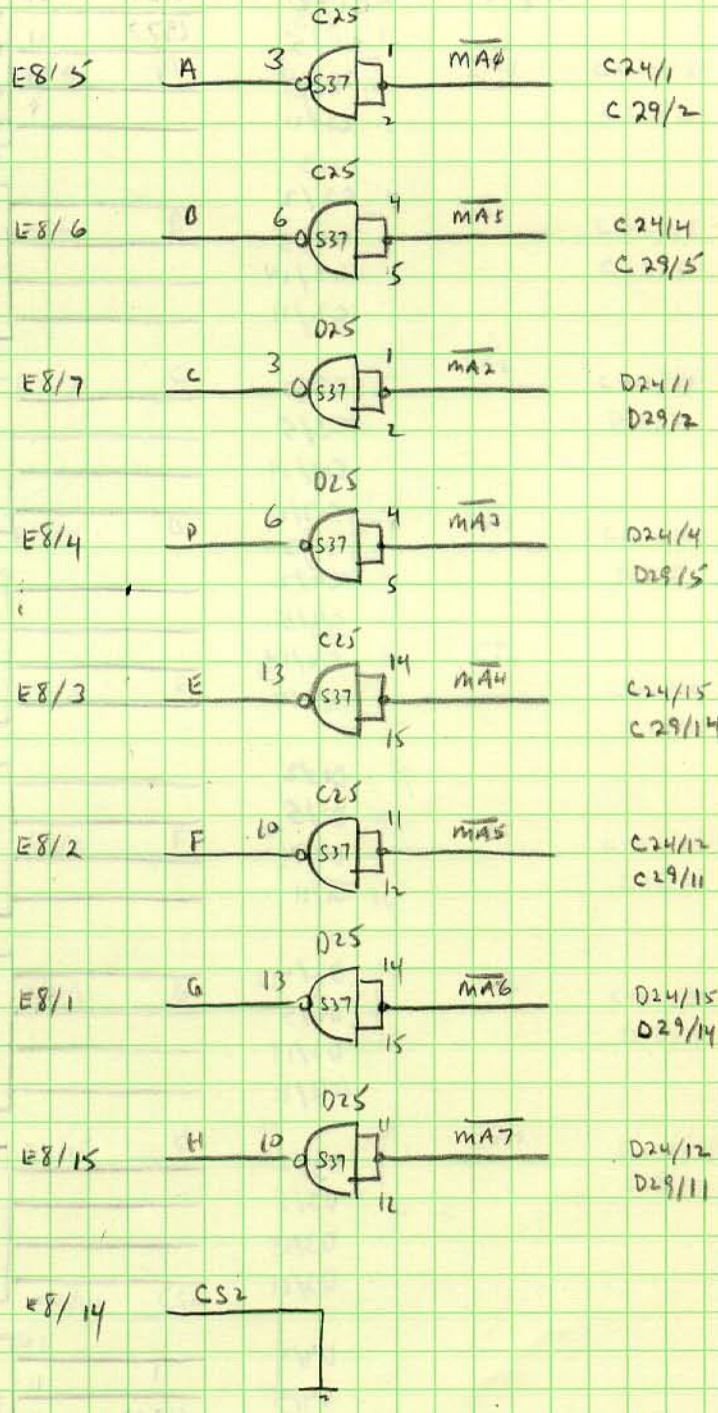 C25
E8/5 A 3 S37 1 2 M̅A̅0̅ C24/1
C29/2
C25
E8/6 B 6 S37 4 5 M̅A̅1̅ C24/4
C29/5
D25
E8/7 C 3 S37 1 2 M̅A̅2̅ D24/1
D29/2
D25
E8/4 D 6 S37 4 5 M̅A̅3̅ D24/4
D29/5
C25
E8/3 E 13 S37 14 15 M̅A̅4̅ C24/15
C29/14
C25
E8/2 F 10 S37 11 12 M̅A̅5̅ C24/12
C29/11
D25
E8/1 G 13 S37 14 15 M̅A̅6̅ D24/15
D29/14
D25
E8/15 H 10 S37 11 12 M̅A̅7̅ D24/12
D29/11
E8/14 CS2